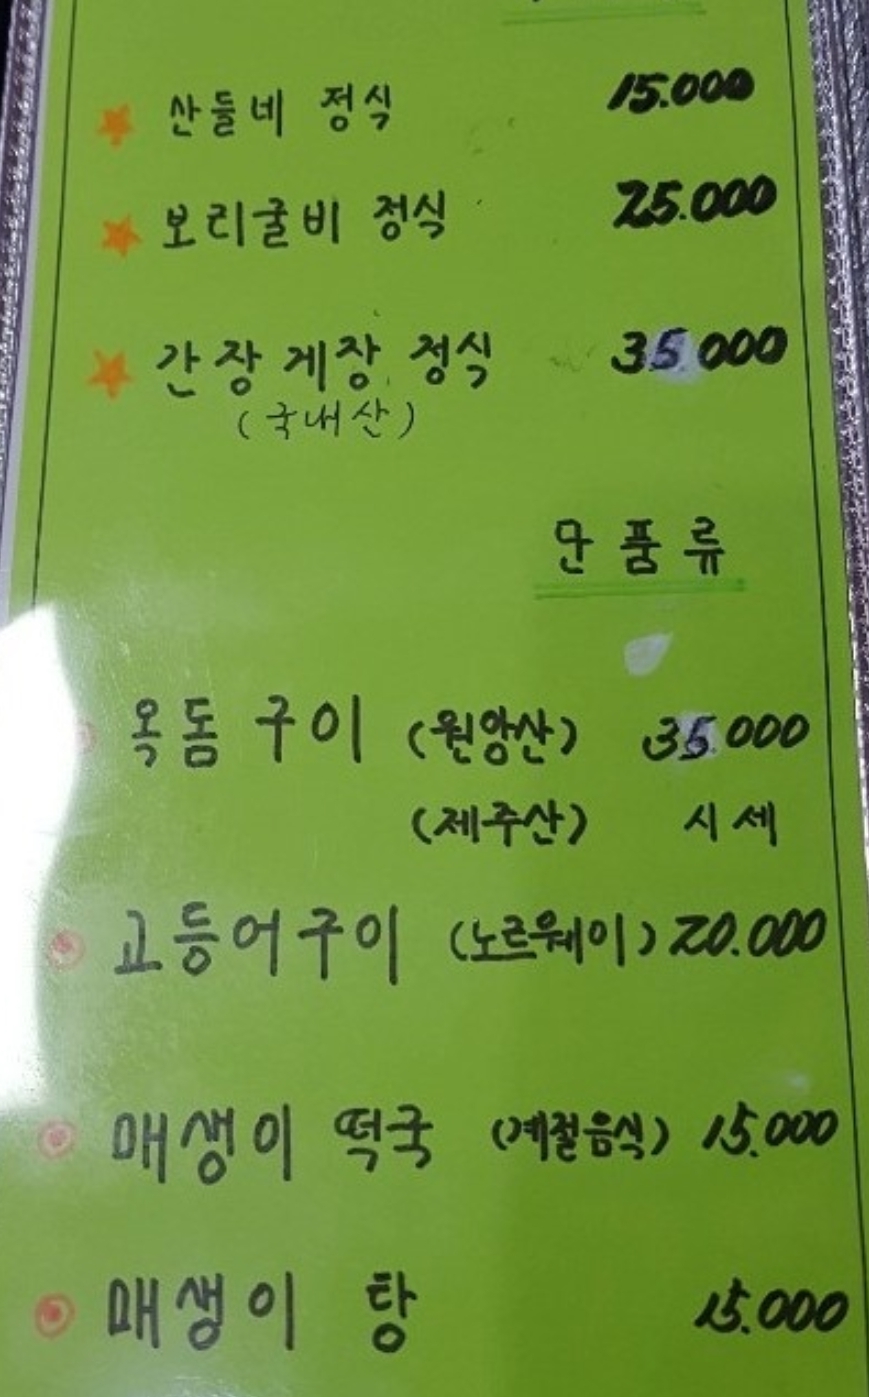 산들네 정식 15.000
보리굴비 정식 25.000
간장게장 정식 35.000
(국내산)
단품류
옥돔구이 (원양산) 35.000
(제주산) 시세
고등어구이 (노르웨이) 20.000
매생이 떡국 (계절음식) 15.000
매생이 탕 15.000